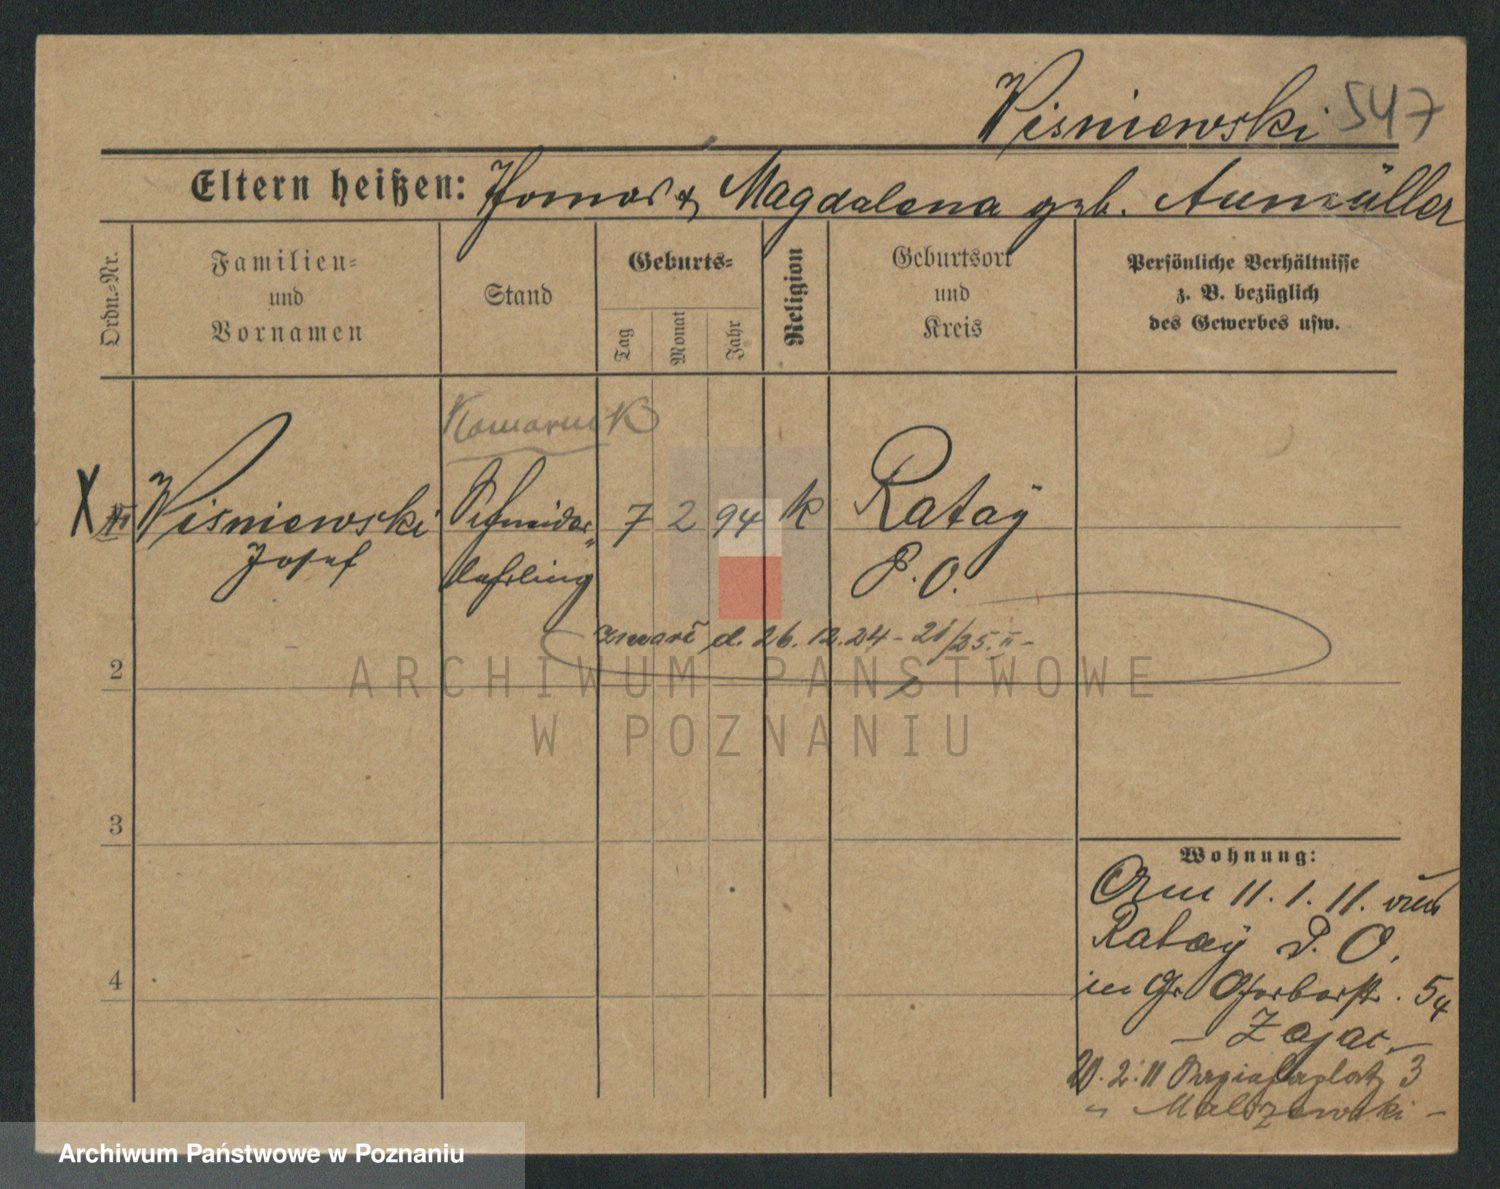 Wisniewski 547
Eltern heißen: Thomas & Magdalena geb. Aumüller
Ordn.-Nr.
Familien-
und
Vornamen
Stand
Geburts-
Tag
Monat
Jahr
Religion
Geburtsort
und
Kreis
Persönliche Verhältnisse
z. B. bezüglich
des Gewerbes usw.
X Wisniewski Schneider 7 2 94 k Ratay
Josef lehrling P. O.
d. 26. 12. 24 - 21/25. II -
2
ARCHIWUM PAŃSTWOWE
W POZNANIU
3
Wohnung:
Am 11. 1. 11. aus
Ratay P. O.
in Gr Gerberstr. 54
- Zajac -
4
20. 2. 11 3
- Malszewski -
Archiwum Państwowe w Poznaniu